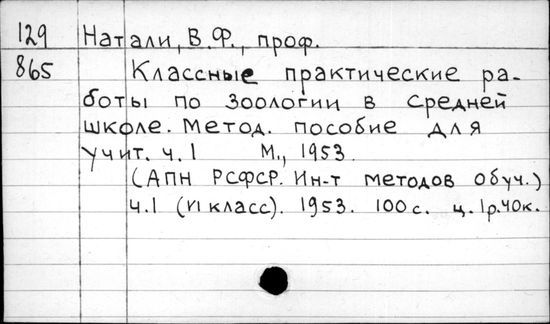 129 Натали, В.Ф., проф.
865 Классные практические ра-
боты по зоологии в средней
школе. Метод. пособие для
учит. ч.1 М., 1953.
(АПН РСФСР. Ин-т методов обуч.)
ч.1 (VI класс). 1953. 100 с. ц. 1р.40к.